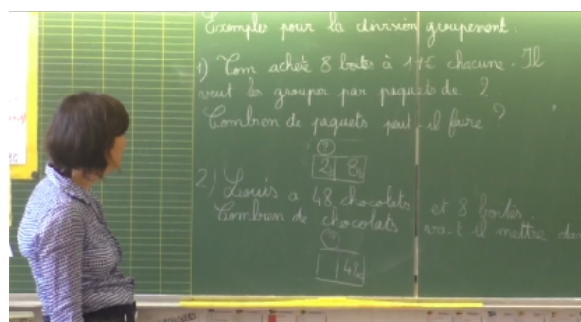 Exemples pour la division groupement.
1) Tom achète 8 boîtes à 11€ chacune. Il
veut les grouper par paquets de 2.
Combien de paquets peut-il faire ?
?
2 8
2) Louis a 48 chocolats et 8 boîtes.
Combien de chocolats va-t-il mettre dan
?
48